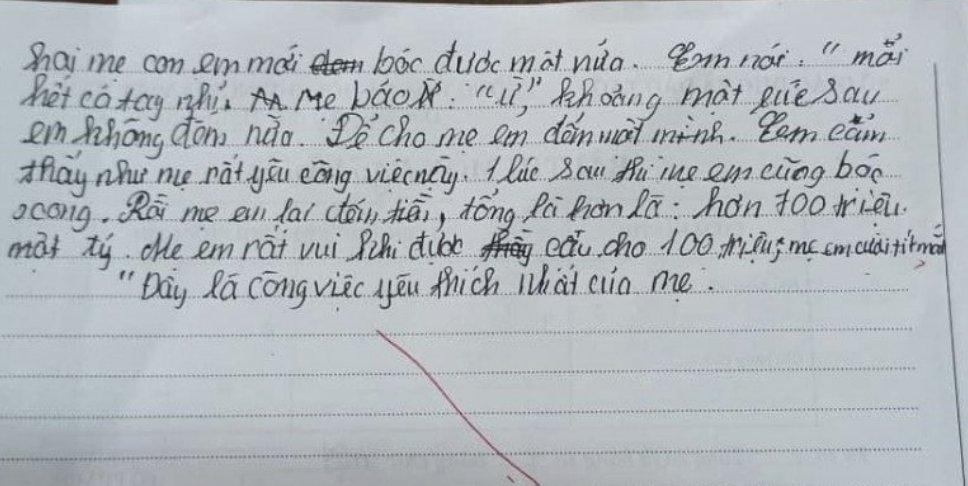 hai mẹ con em mới bóc được một nửa. Em nói: "mỏi
hết cả tay nhỉ. Mẹ bảo: "ừ," khoảng một lúc sau
em không đếm nữa. Để cho mẹ em đếm một mình. Em cảm
thấy như mẹ rất yêu công việc này. 1 lúc sau thì mẹ em cũng bóc
xong. Rồi mẹ em lại đếm tiền, tổng là hơn là: hơn 700 triệu.
một tỷ. Mẹ em rất vui khi được cầu cho 100 triệu; mẹ em cười tít mắt
"Đây là công việc yêu thích nhất của mẹ.